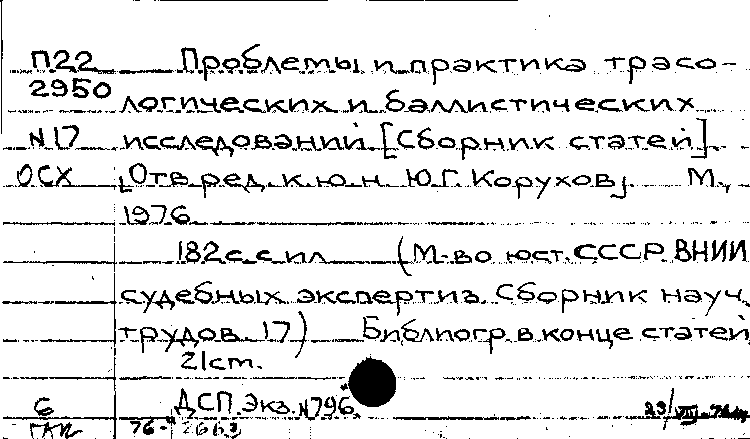 П22 Проблемы и практика трасо-
2950 логических и баллистических
N17 исследований. [Сборник статей].
ОСХ [Отв. ред. к.ю.н. Ю.Г. Корухов]. М.,
1976.
182 с. с ил. (М-во юст. СССР. ВНИИ
судебных экспертиз. Сборник науч.
трудов. 17) Библиогр. в конце статей
21 ст.
6 ДСП. Экз. N796. 23/VIII-76
76-